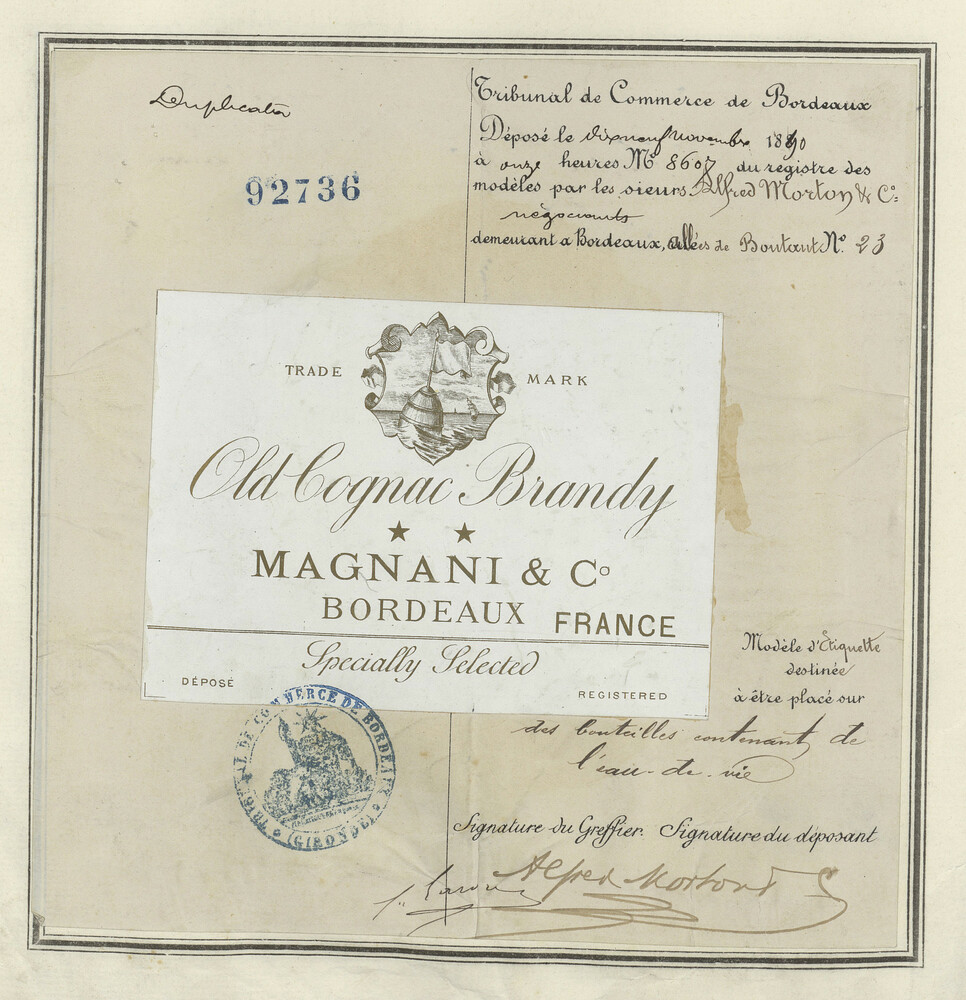 Duplicata
92736
Tribunal de Commerce de Bordeaux
Déposé le dix neuf Novembre 1890
à onze heures Nº 8607 du registre des
modèles par les sieurs Alfred Morton & Cº
négociants
demeurant a Bordeaux, allées de Boutaut Nº 23
TRADE MARK
Old Cognac Brandy
MAGNANI & Cº
BORDEAUX FRANCE
Specially Selected
DÉPOSÉ REGISTERED
Modèle d'Étiquette
destinée
à être placé sur
des bouteilles contenant de
l'eau-de-vie
TRIBUNAL DE COMMERCE DE BORDEAUX
(GIRONDE)
Signature du Greffier. Signature du déposant
Alfred Morton & C